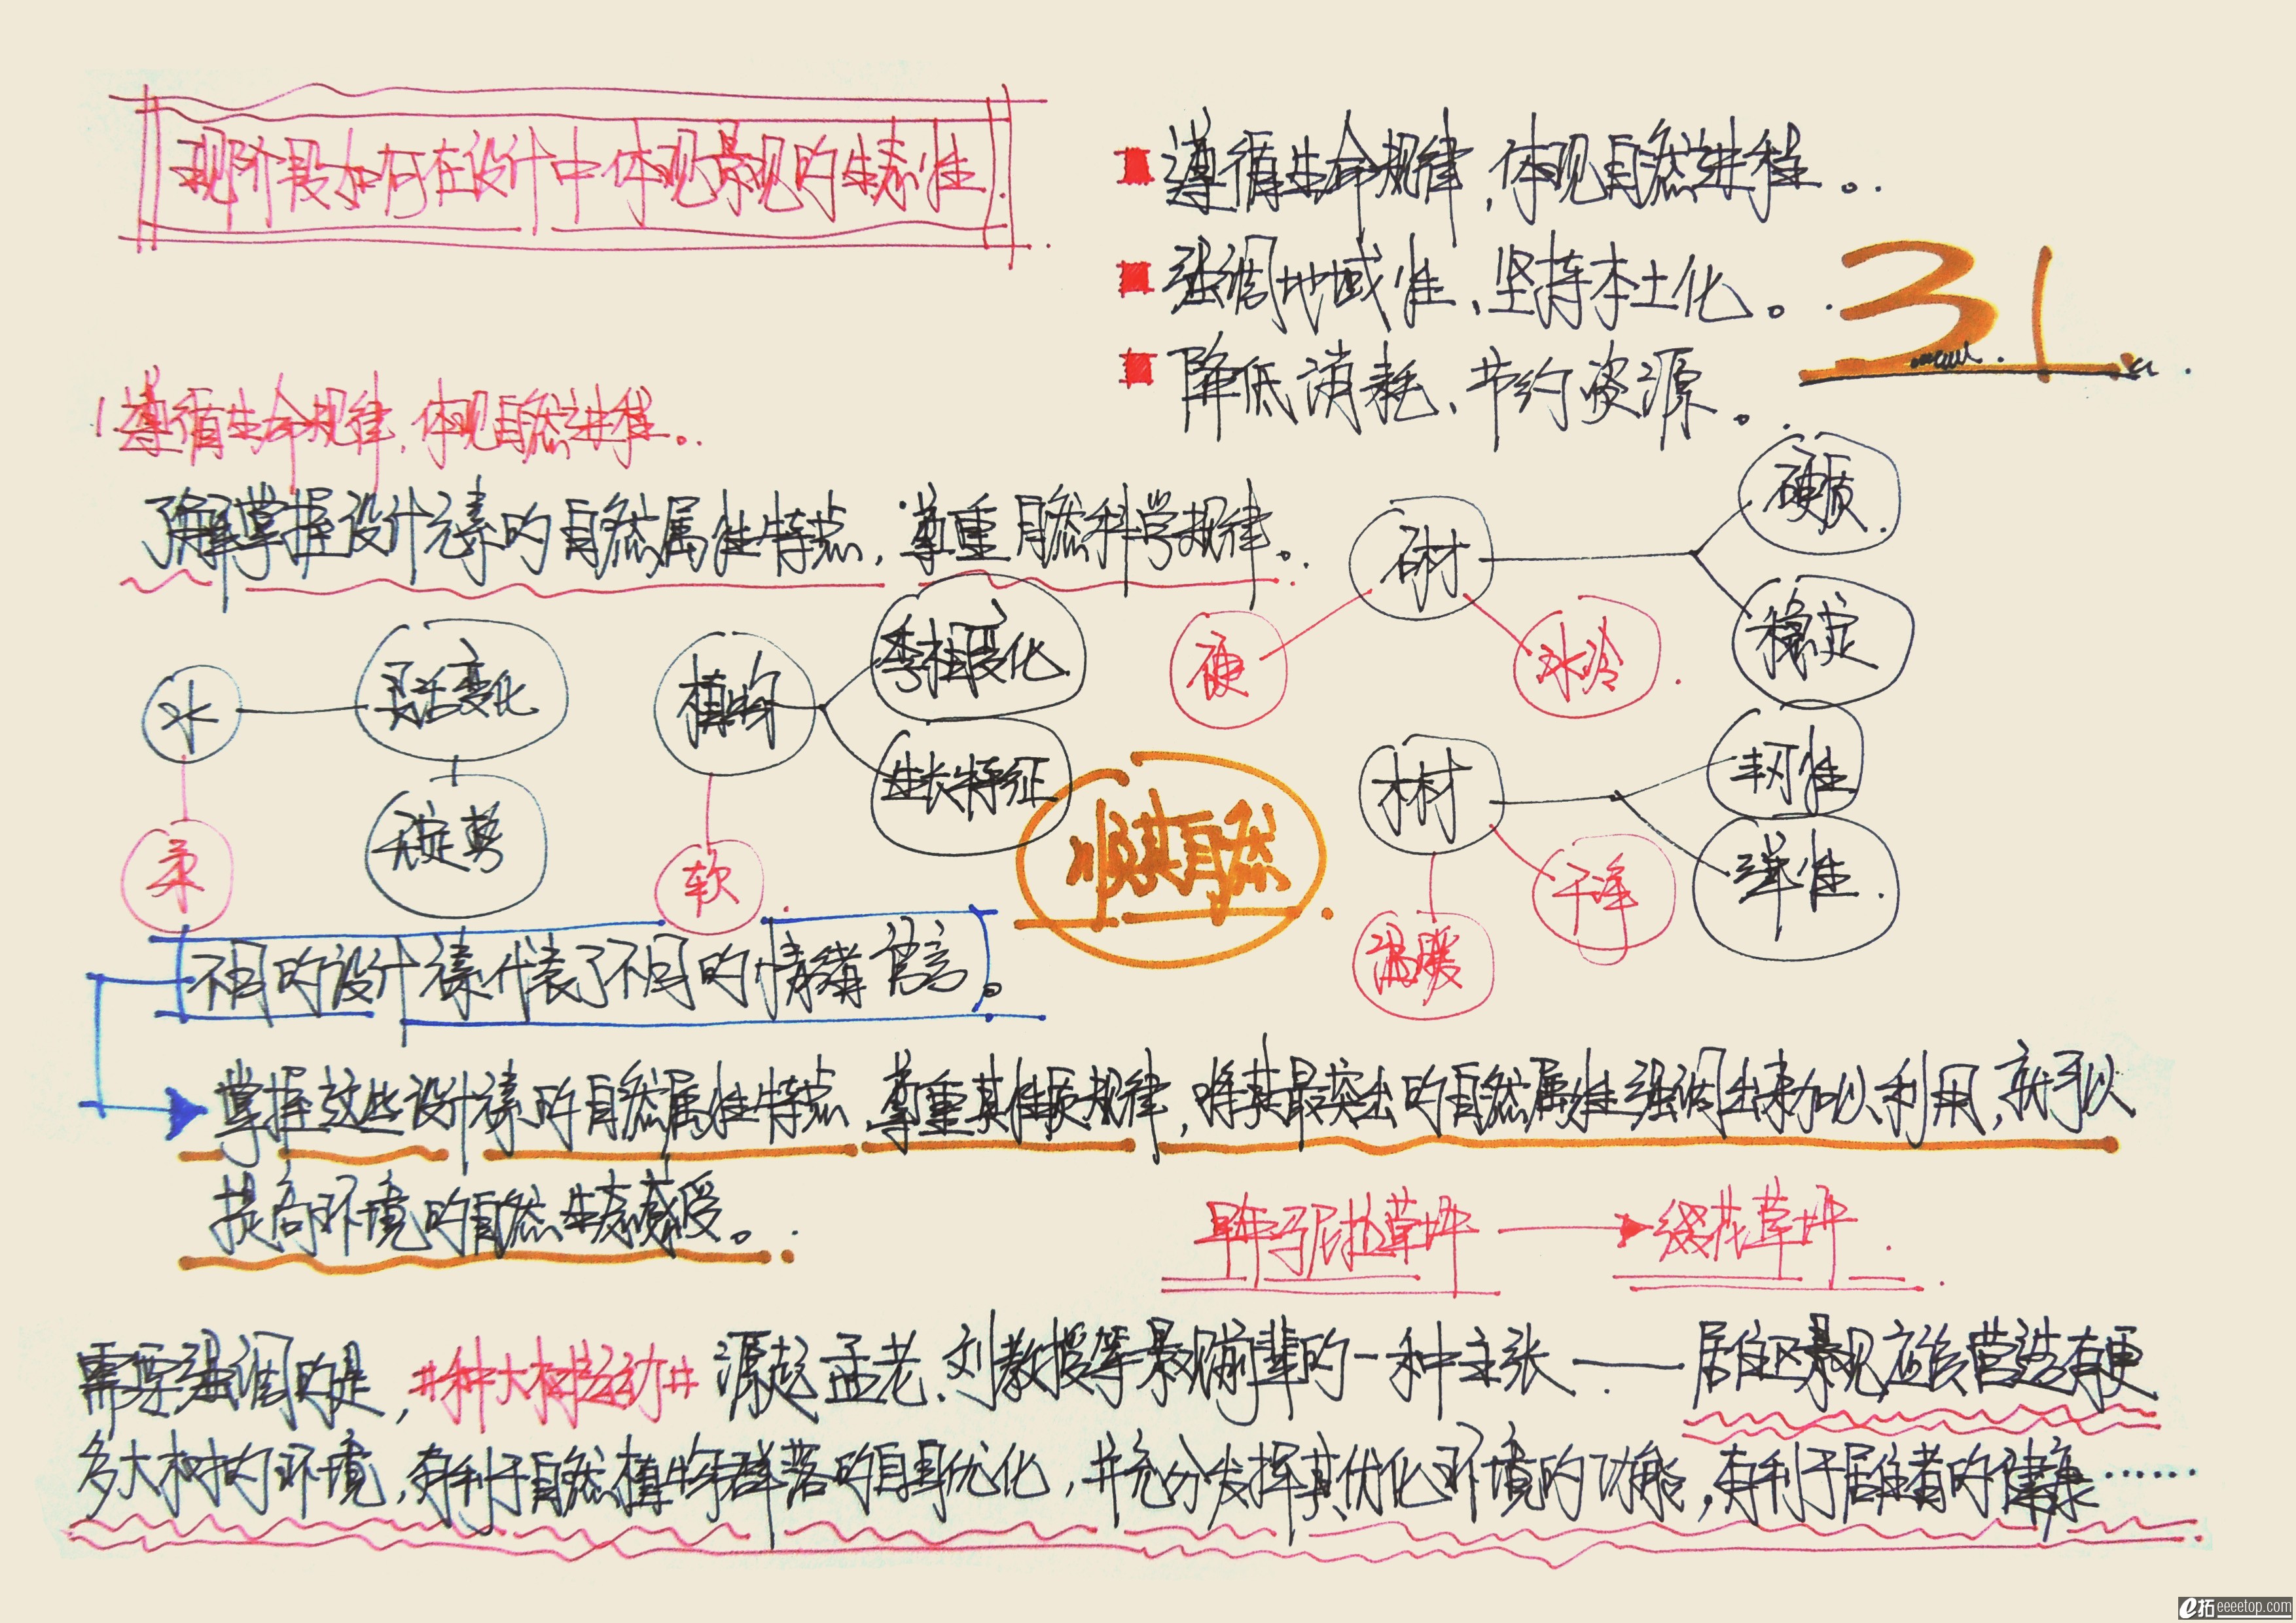 现阶段如何在设计中体现景观的生态性
遵循生命规律,体现自然进程。
强调地域性、坚持本土化。
降低消耗、节约资源。
31
1.遵循生命规律,体现自然进程。
了解掌握设计元素的自然属性特点,尊重自然科学规律。
水
灵活变化
无定势
柔
植物
季相变化
生长特征
软
石材
硬质
稳定
硬
冰冷
木材
韧性
弹性
干净
温暖
顺其自然
不同的设计元素代表了不同的情绪语言。
掌握这些设计元素的自然属性特点,尊重其性质规律,将其最突出的自然属性强调出来加以利用,就可以
提高环境的自然生态感受。
早熟马尼拉草坪
缀花草坪
需要强调的是,#种大树运动#源起孟老、刘教授等景观前辈的一种主张——居住区景观应该营造有更
多大树的环境,有利于自然植物群落的自身优化,并充分发挥其优化环境的功能,有利于居住者的健康……
e拓eeeetop.com